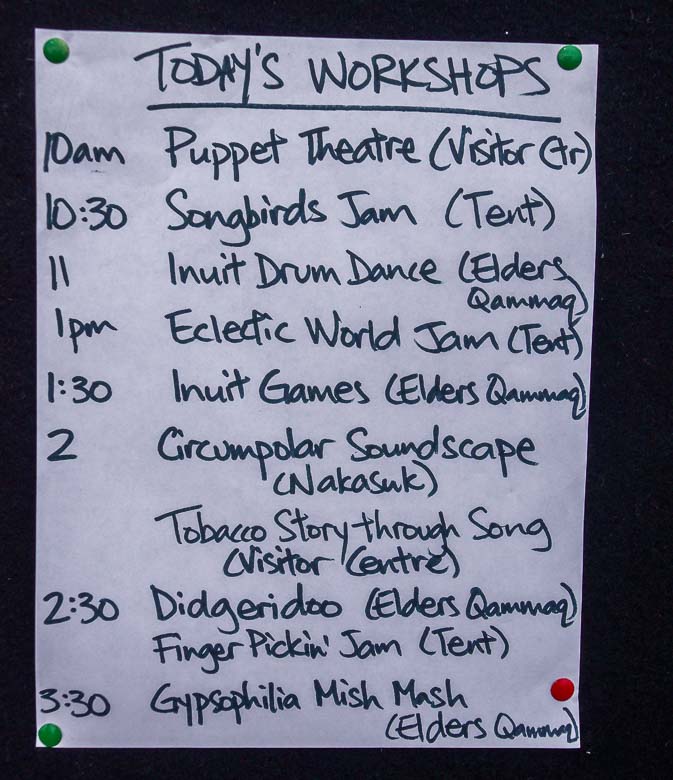 TODAY'S WORKSHOPS
10am Puppet Theatre (Visitor Ctr)
10:30 Songbirds Jam (Tent)
11 Inuit Drum Dance (Elders
Qammaq)
1pm Eclectic World Jam (Tent)
1:30 Inuit Games (Elders Qammaq)
2 Circumpolar Soundscape
(Nakasuk)
Tobacco Story through Song
(Visitor Centre)
2:30 Didgeridoo (Elders Qammaq)
Finger Pickin' Jam (Tent)
3:30 Gypsophilia Mish Mash
(Elders Qammaq)